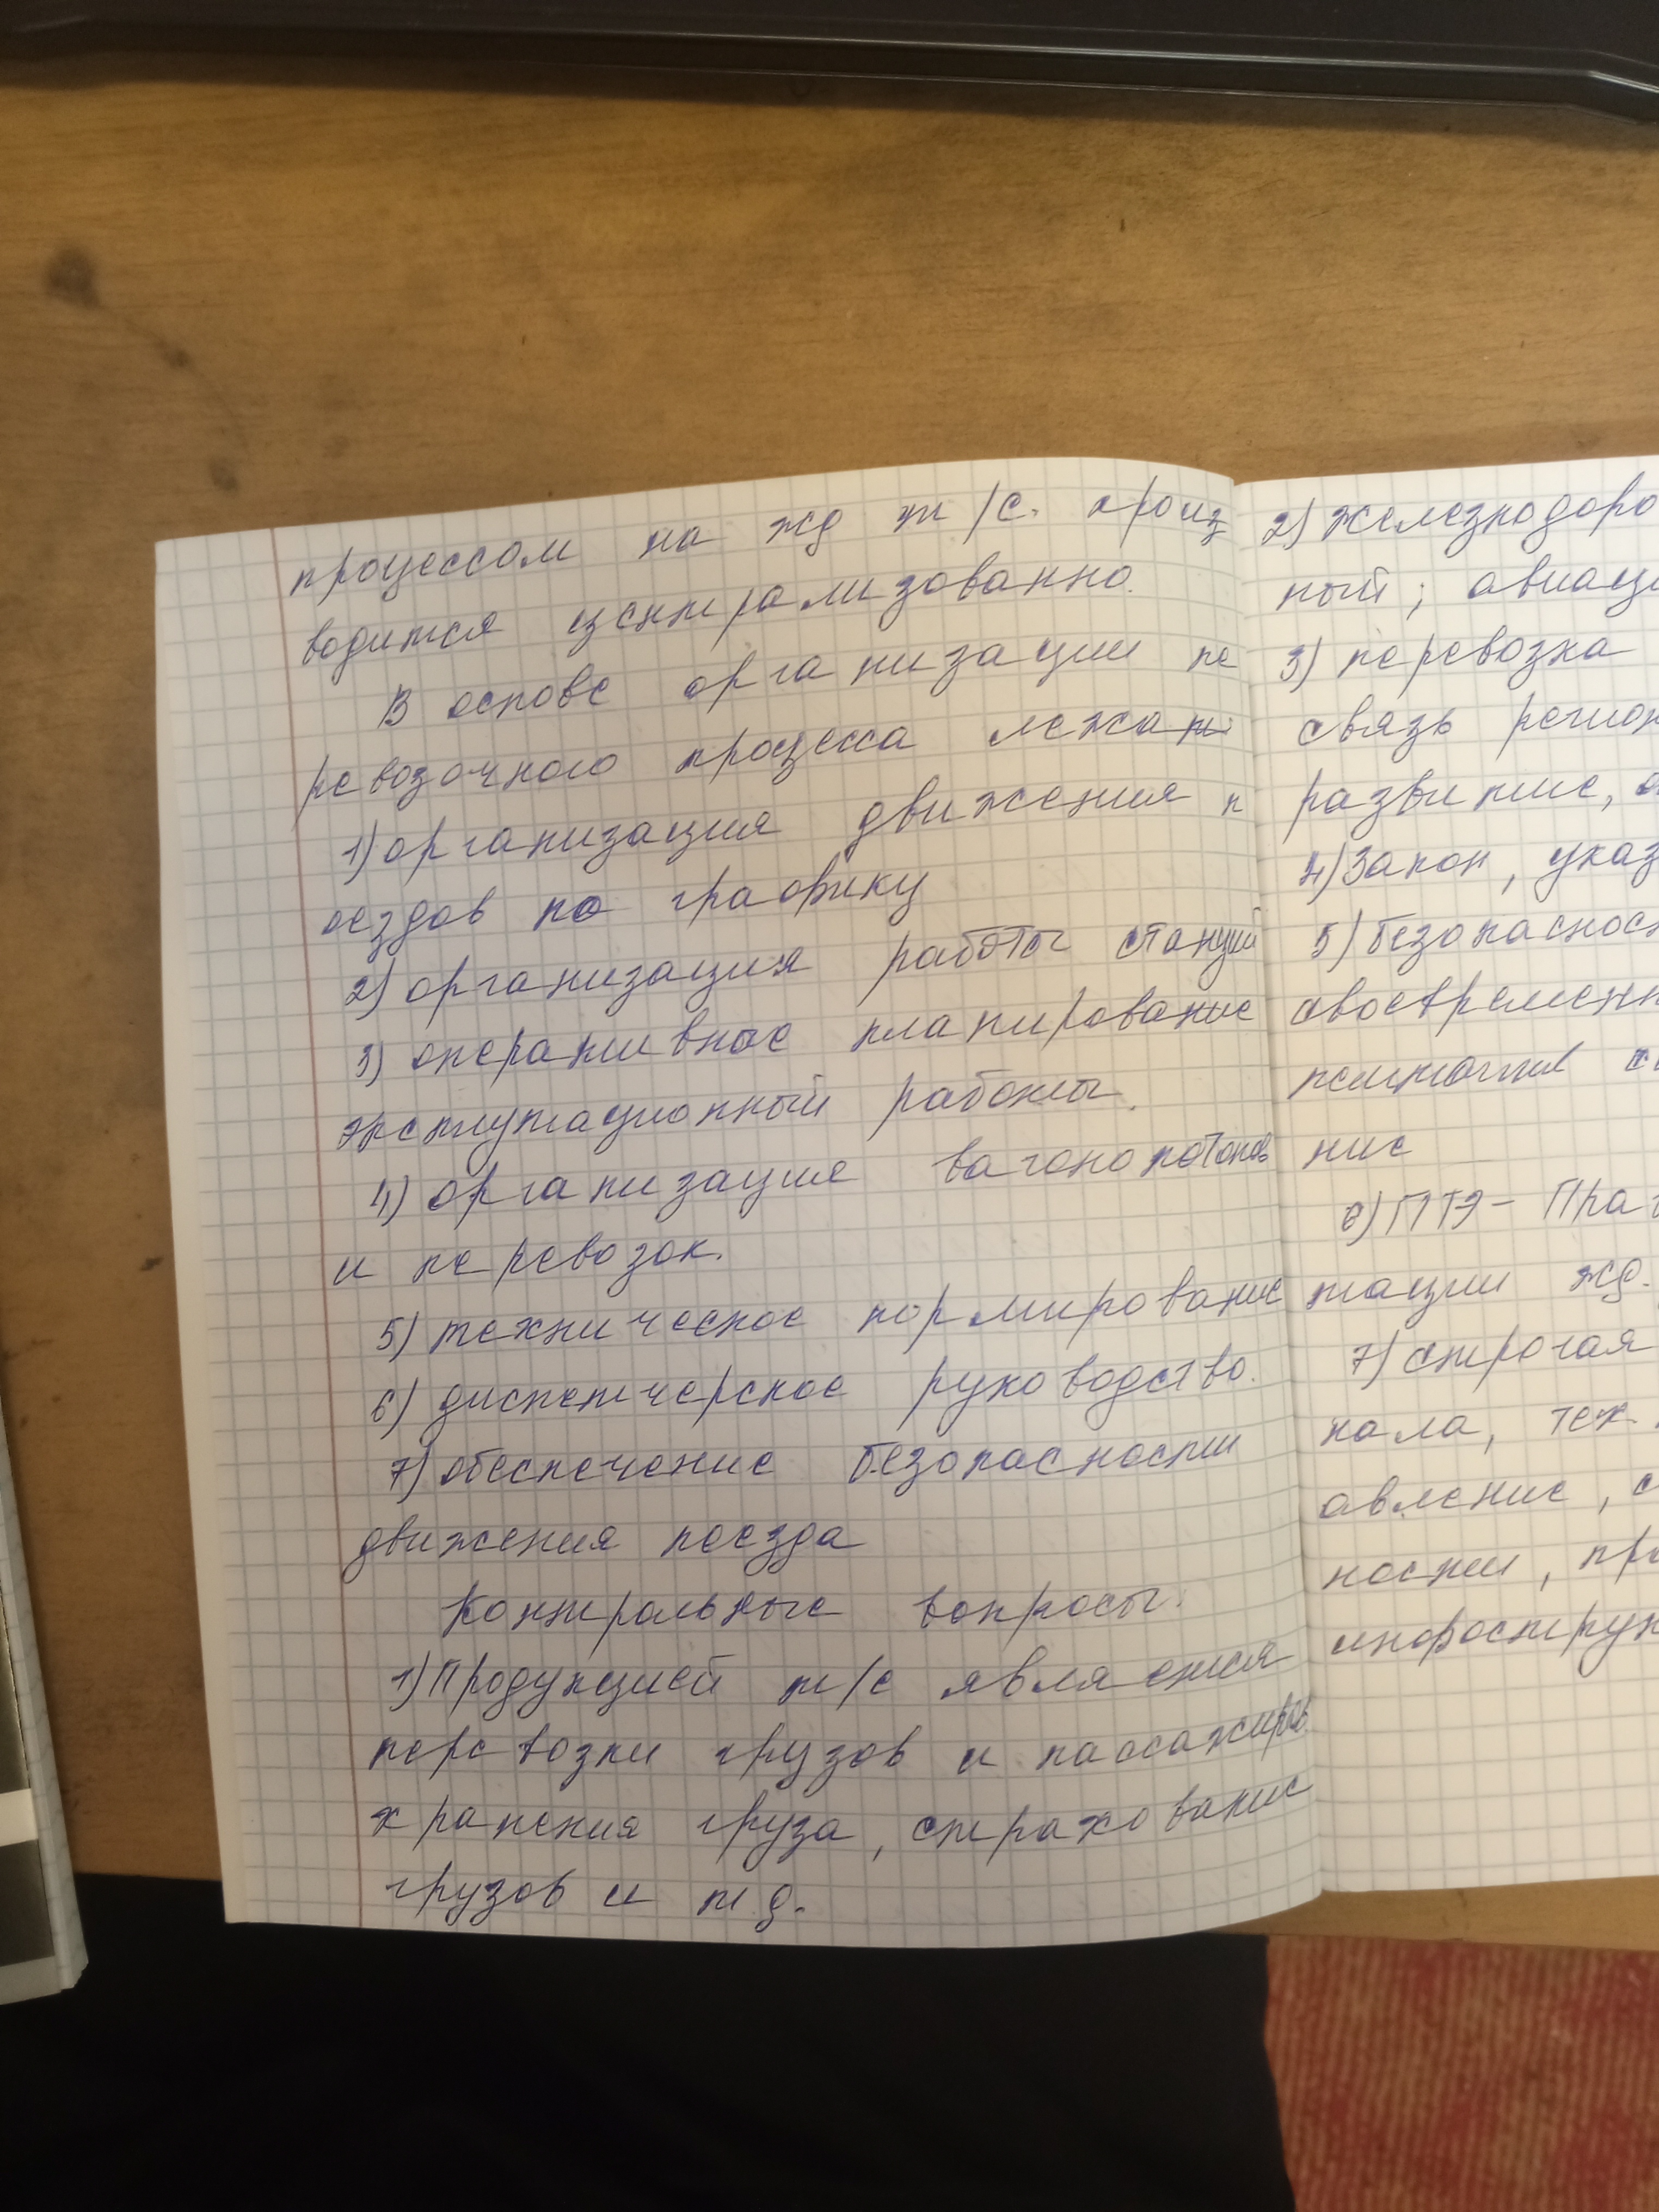 процессом на жд т/с. произ
водится централизованно.
В основе организации пе
ревозочного процесса лежат:
1) организация движения п
оездов по графику
2) организация работы станций
3) оперативные планирование
эксплутационный работы.
4) организация вагонопотоков
и перевозок.
5) техническое нормирование
6) диспетчерское руководство.
7) обеспечение безопасности
движения поезда
Контрольные вопросы:
1) Продукцией т/с является
перевозки грузов и пассажиров
хранения груза, страхование
грузов и т д.
2) Железнодоро
ный; авиаци
3) перевозка
связь регион
развитие, о
4) Закон, указ
5) безопасност
своевременн
ние
6) ПТЭ - Прав
тации жд.
7) строгая
нала, тех.
авление, с
ности, про
инфостру